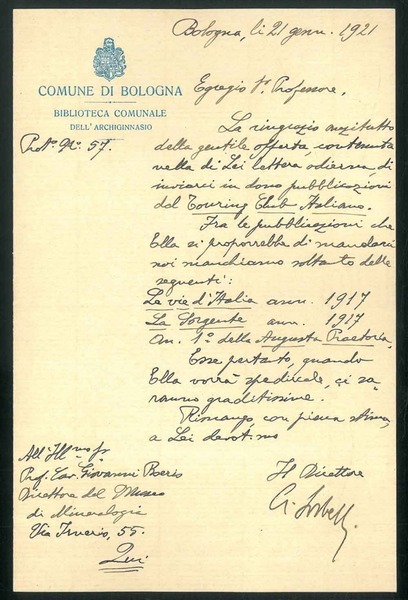 Bologna, li 21 genn. 1921
COMUNE DI BOLOGNA
BIBLIOTECA COMUNALE
DELL'ARCHIGINNASIO
Prot.o No. 57.
Egregio Sr. Professore,
La ringrazio anzitutto
della gentile offerta, contenuta
nella di Lei lettera odierna, di
inviarci in dono pubblicazioni
del Touring Club Italiano.
Fra le pubblicazioni che
Ella si proporrebbe di mandarci
noi manchiamo soltanto delle
seguenti:
Le vie d'Italia ann. 1917
La Sorgente ann. 1917
An. 1o della Augusta Praetoria.
Esse pertanto, quando
Ella vorrà spedircele, ci sa-
ranno graditissime.
Rimango, con piena stima,
a Lei devot.mo
Il Direttore
A. Sorbelli
All'Ill.mo Sr.
Prof. Cav. Giovanni Boeris
Direttore del Museo
di Mineralogia
Via Irnerio, 55.
Qui